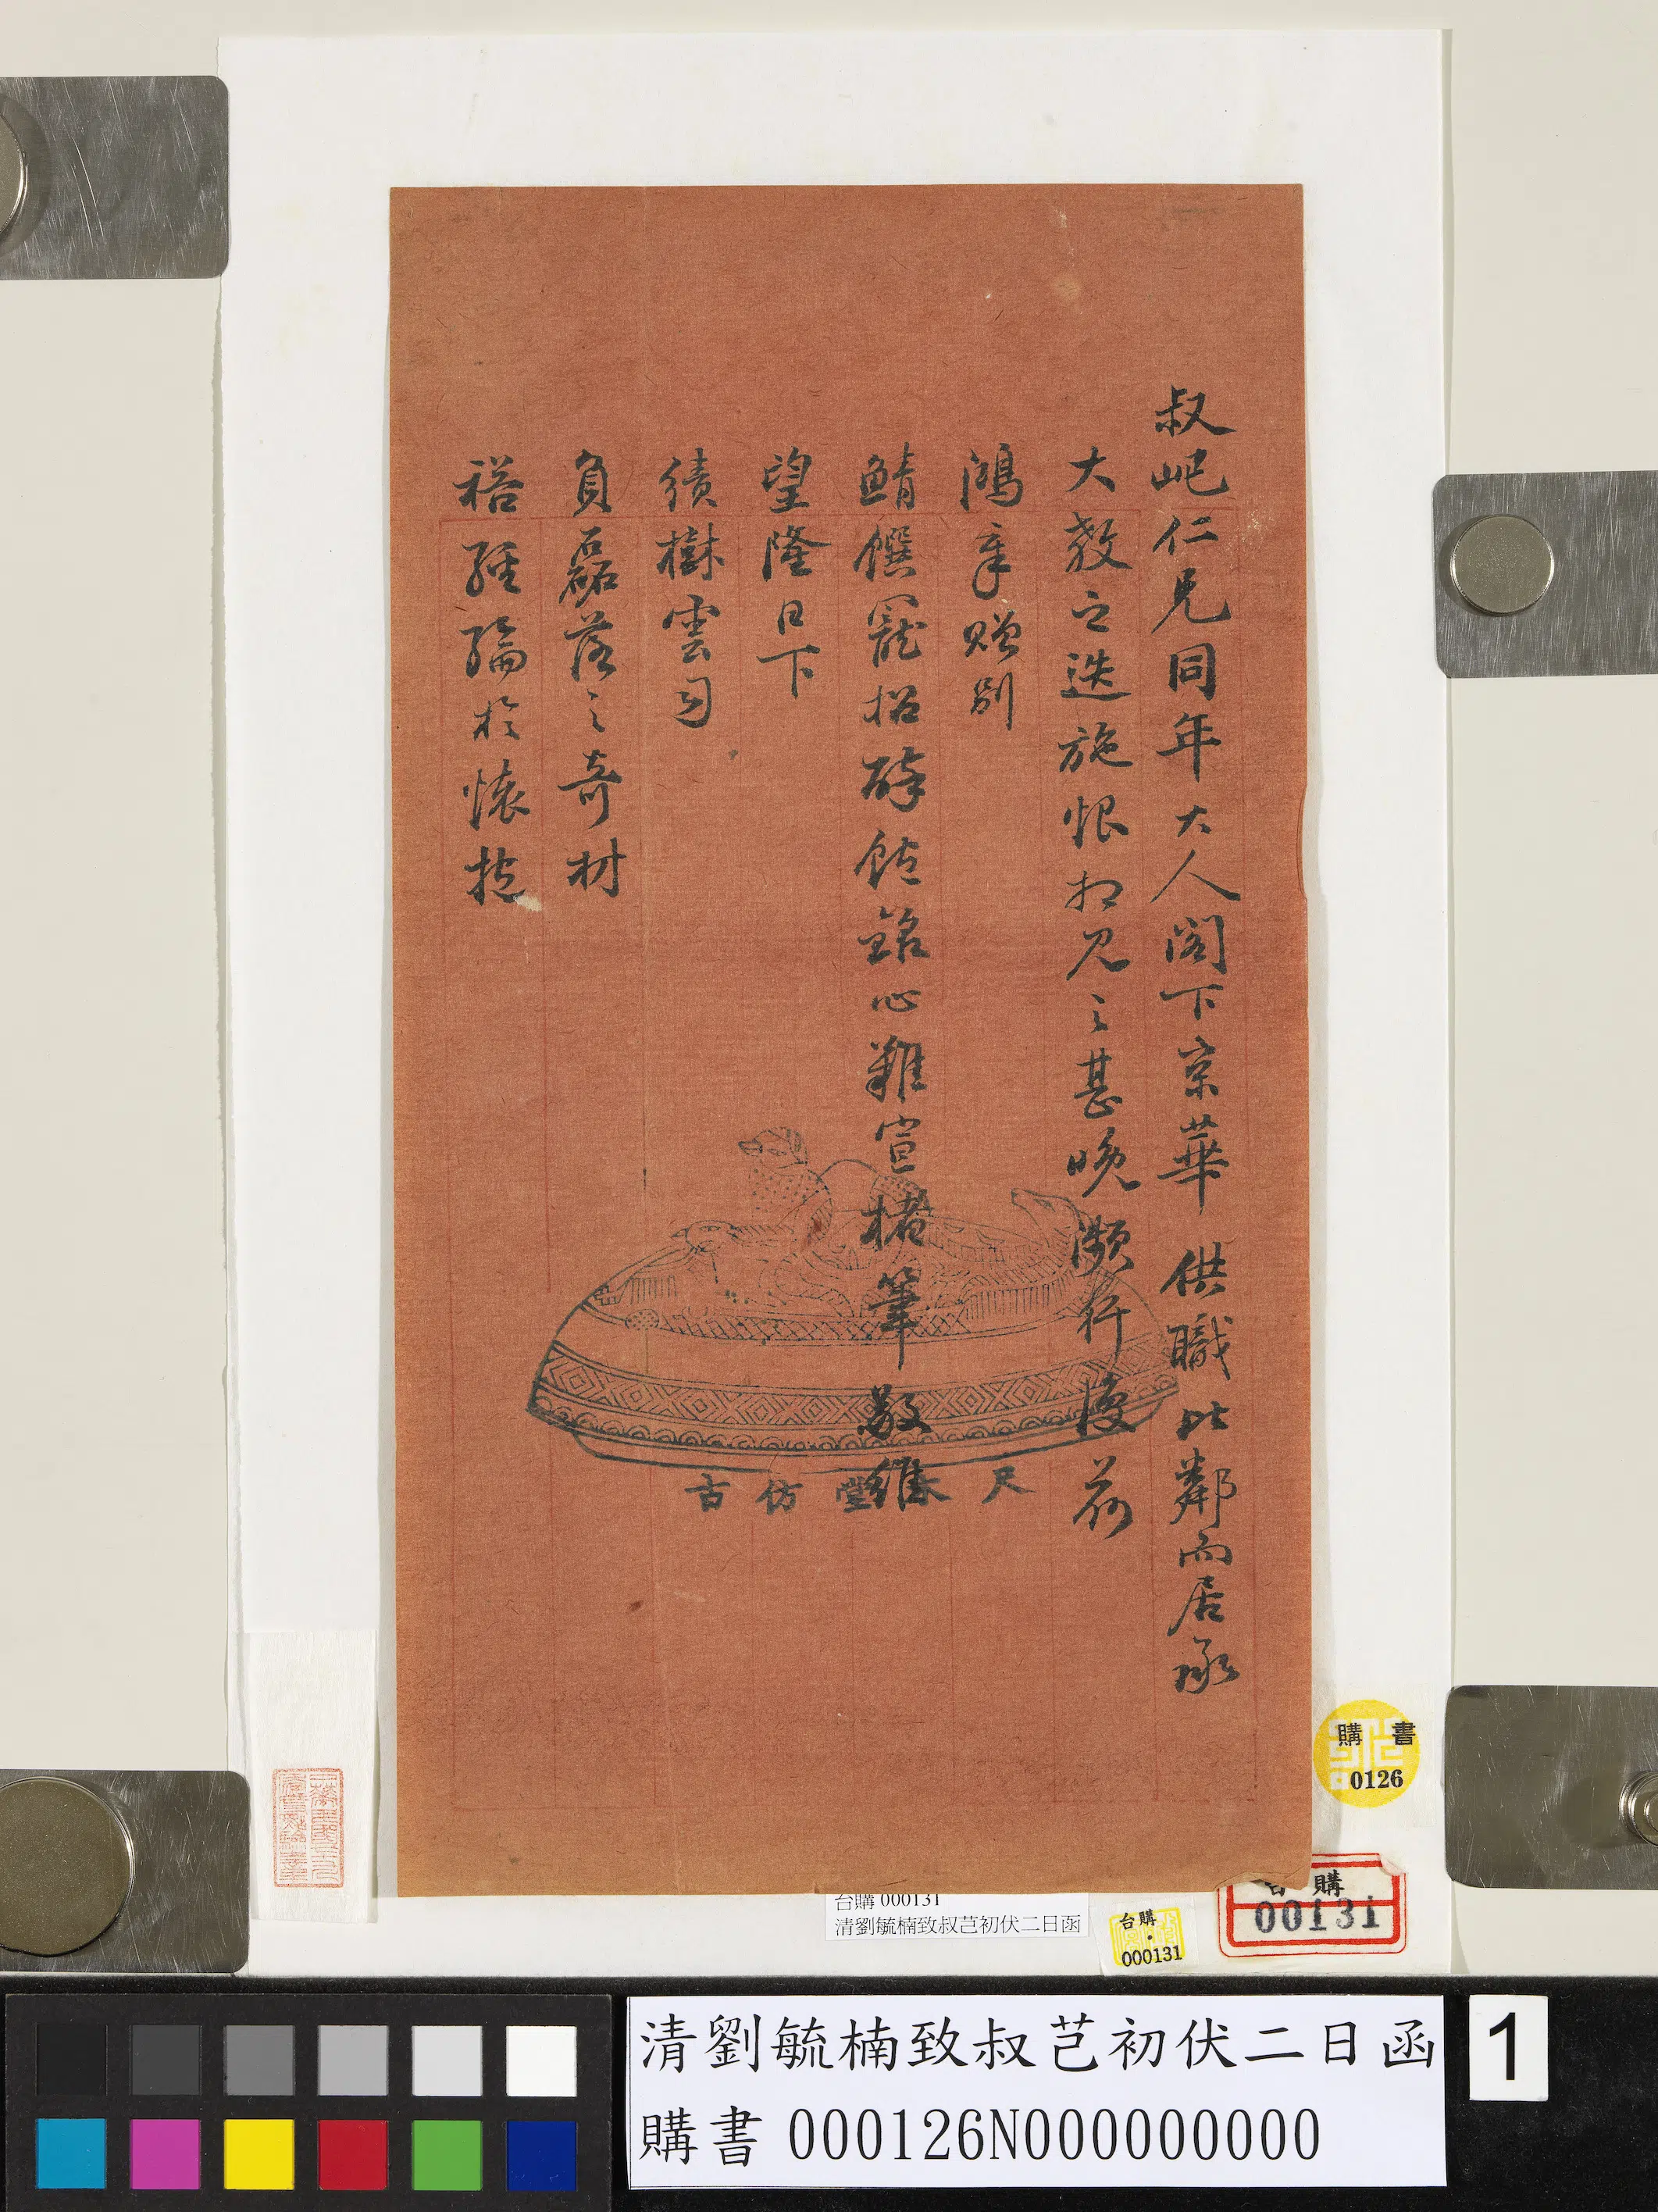 叔屺仁兄同年大人閣下京華供職比鄰而居承
大教之迭施恨相見之甚晚瀕行復荷
鴻章贈別
鯖饌寵招醉飽銘心難宣楮筆敬維
望隆日下
績樹雲司
負磊落之奇材
裕經綸於懷抱
尺木堂仿古
購書
0126
台購
00131
台購 000131
清劉毓楠致叔芑初伏二日函
台購
000131
清劉毓楠致叔芑初伏二日函
購書 000126N000000000
1